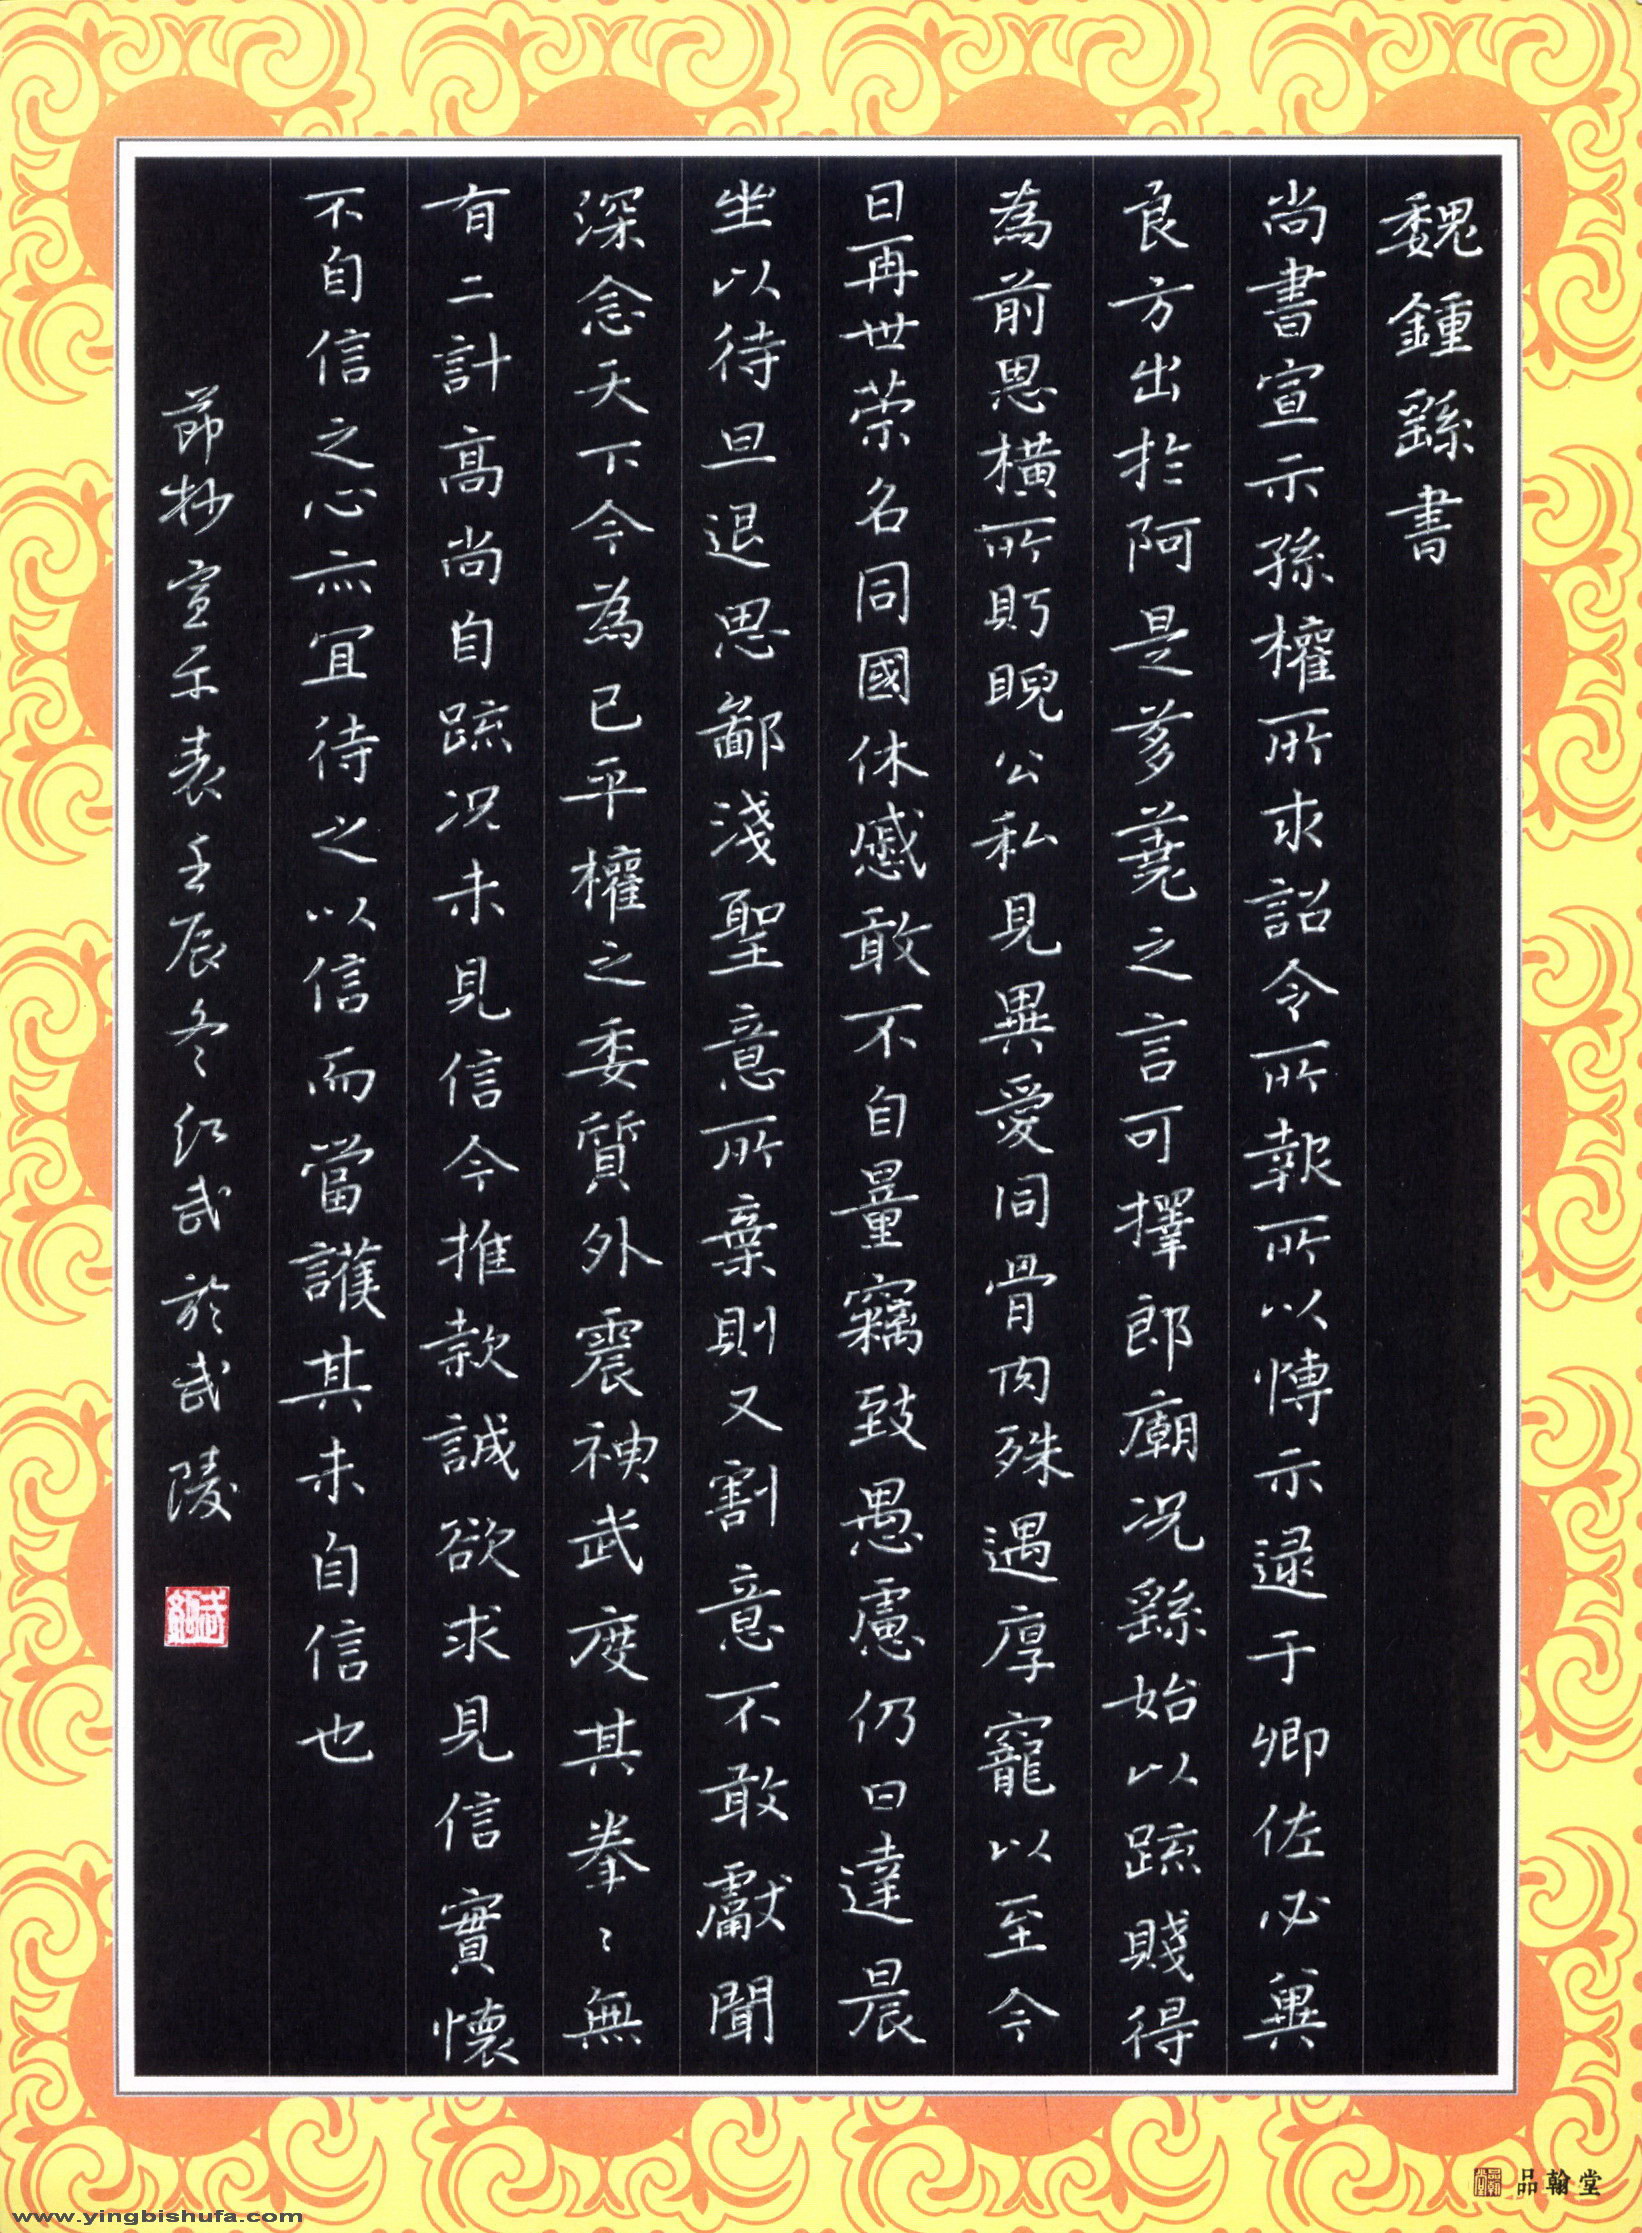 魏鍾繇書
尚書宣示孫權所求詔令所報所以博示逯于卿佐必冀
良方出於阿是芻蕘之言可擇郎廟況繇始以疏賤得
為前恩橫所盻睨公私見異愛同骨肉殊遇厚寵以至今
日再世榮名同國休慼敢不自量竊致愚慮仍日達晨
坐以待旦退思鄙淺聖意所棄則又割意不敢獻聞
深念天下今為已平權之委質外震神武度其拳〻無
有二計高尚自疏況未見信今推款誠欲求見信實懷
不自信之心亦宜待之以信而當護其未自信也
節抄宣示表壬辰冬紅武於武陵
品翰堂
www.yingbishufa.com